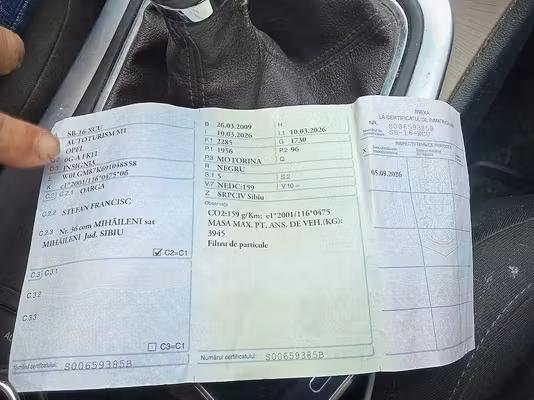 A SB-16-XCU
AUTOTURISM M1
OPEL
0G-A FK11
INSIGNIA
W0LGM87K691048858
K e1*2001/116*0475*06
C.2 C.2.1 OARGA
C.2.2 STEFAN FRANCISC
C.2.3 Nr. 36 com MIHĂILENI sat
MIHĂILENI Jud. SIBIU
C2=C1
C.3 C.3.1
C.3.2
C.3.3
C3=C1
Numărul certificatului: S00659385B
B 26.03.2009 H
I 10.03.2026 I.1 10.03.2026
F.1 2285 G 1730
P.1 1956 P.2 96
P.3 MOTORINA Q
R NEGRU
S.1 5 S.2
V.7 NEDC:159 V.10 --
Z SRPCIV Sibiu
Observații
CO2:159 g/Km; e1*2001/116*0475
MASA MAX. PT. ANS. DE VEH.(KG):
3945
Filtru de particule
Numărul certificatului: S00659385B
ANEXA
LA CERTIFICATUL DE ÎNMATRICULARE
NR. S00659385B
SB-16-XCU
INSPECȚII TEHNICE PERIODICE
X
05.09.2026